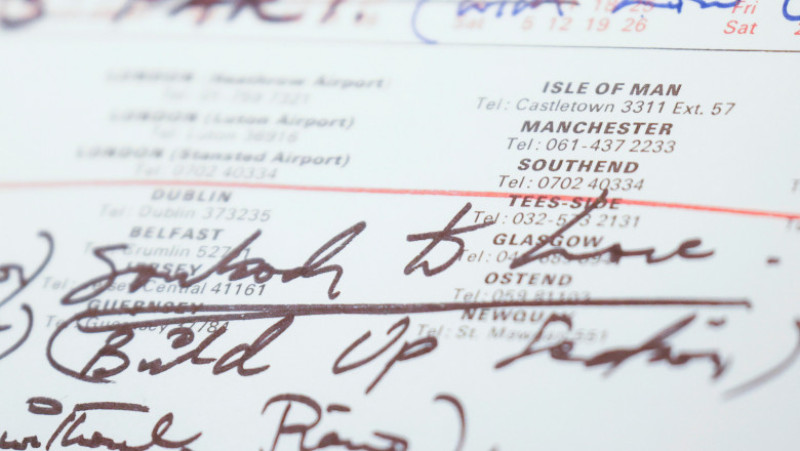 PART. (with
5 12 19 26
Fri
Sat
LONDON (Heathrow Airport)
LONDON (Luton Airport)
Tel: Luton 36916
LONDON (Stansted Airport)
Tel: 0702 40334
DUBLIN
Tel: Dublin 373235
BELFAST
Crumlin
JERSEY
Central 41161
GUERNSEY
Tel: Guernsey
ISLE OF MAN
Tel: Castletown 3311 Ext. 57
MANCHESTER
Tel: 061-437 2233
SOUTHEND
Tel: 0702 40334
TEES-SIDE
Tel: 032-573 2131
GLASGOW
Tel:
OSTEND
Tel: 059 81103
NEWQUAY
Tel: St. Mawgan 551
Somebody to Love.
(Build Up Section)
without Piano)